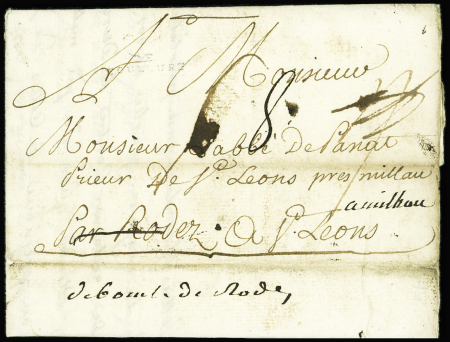 A Monsieur
8
Monsieur L'abbé De Panat
Prieur De St Leons pres millau
a milhau
Par Rodez. A St Leons
debourcé de Rodez